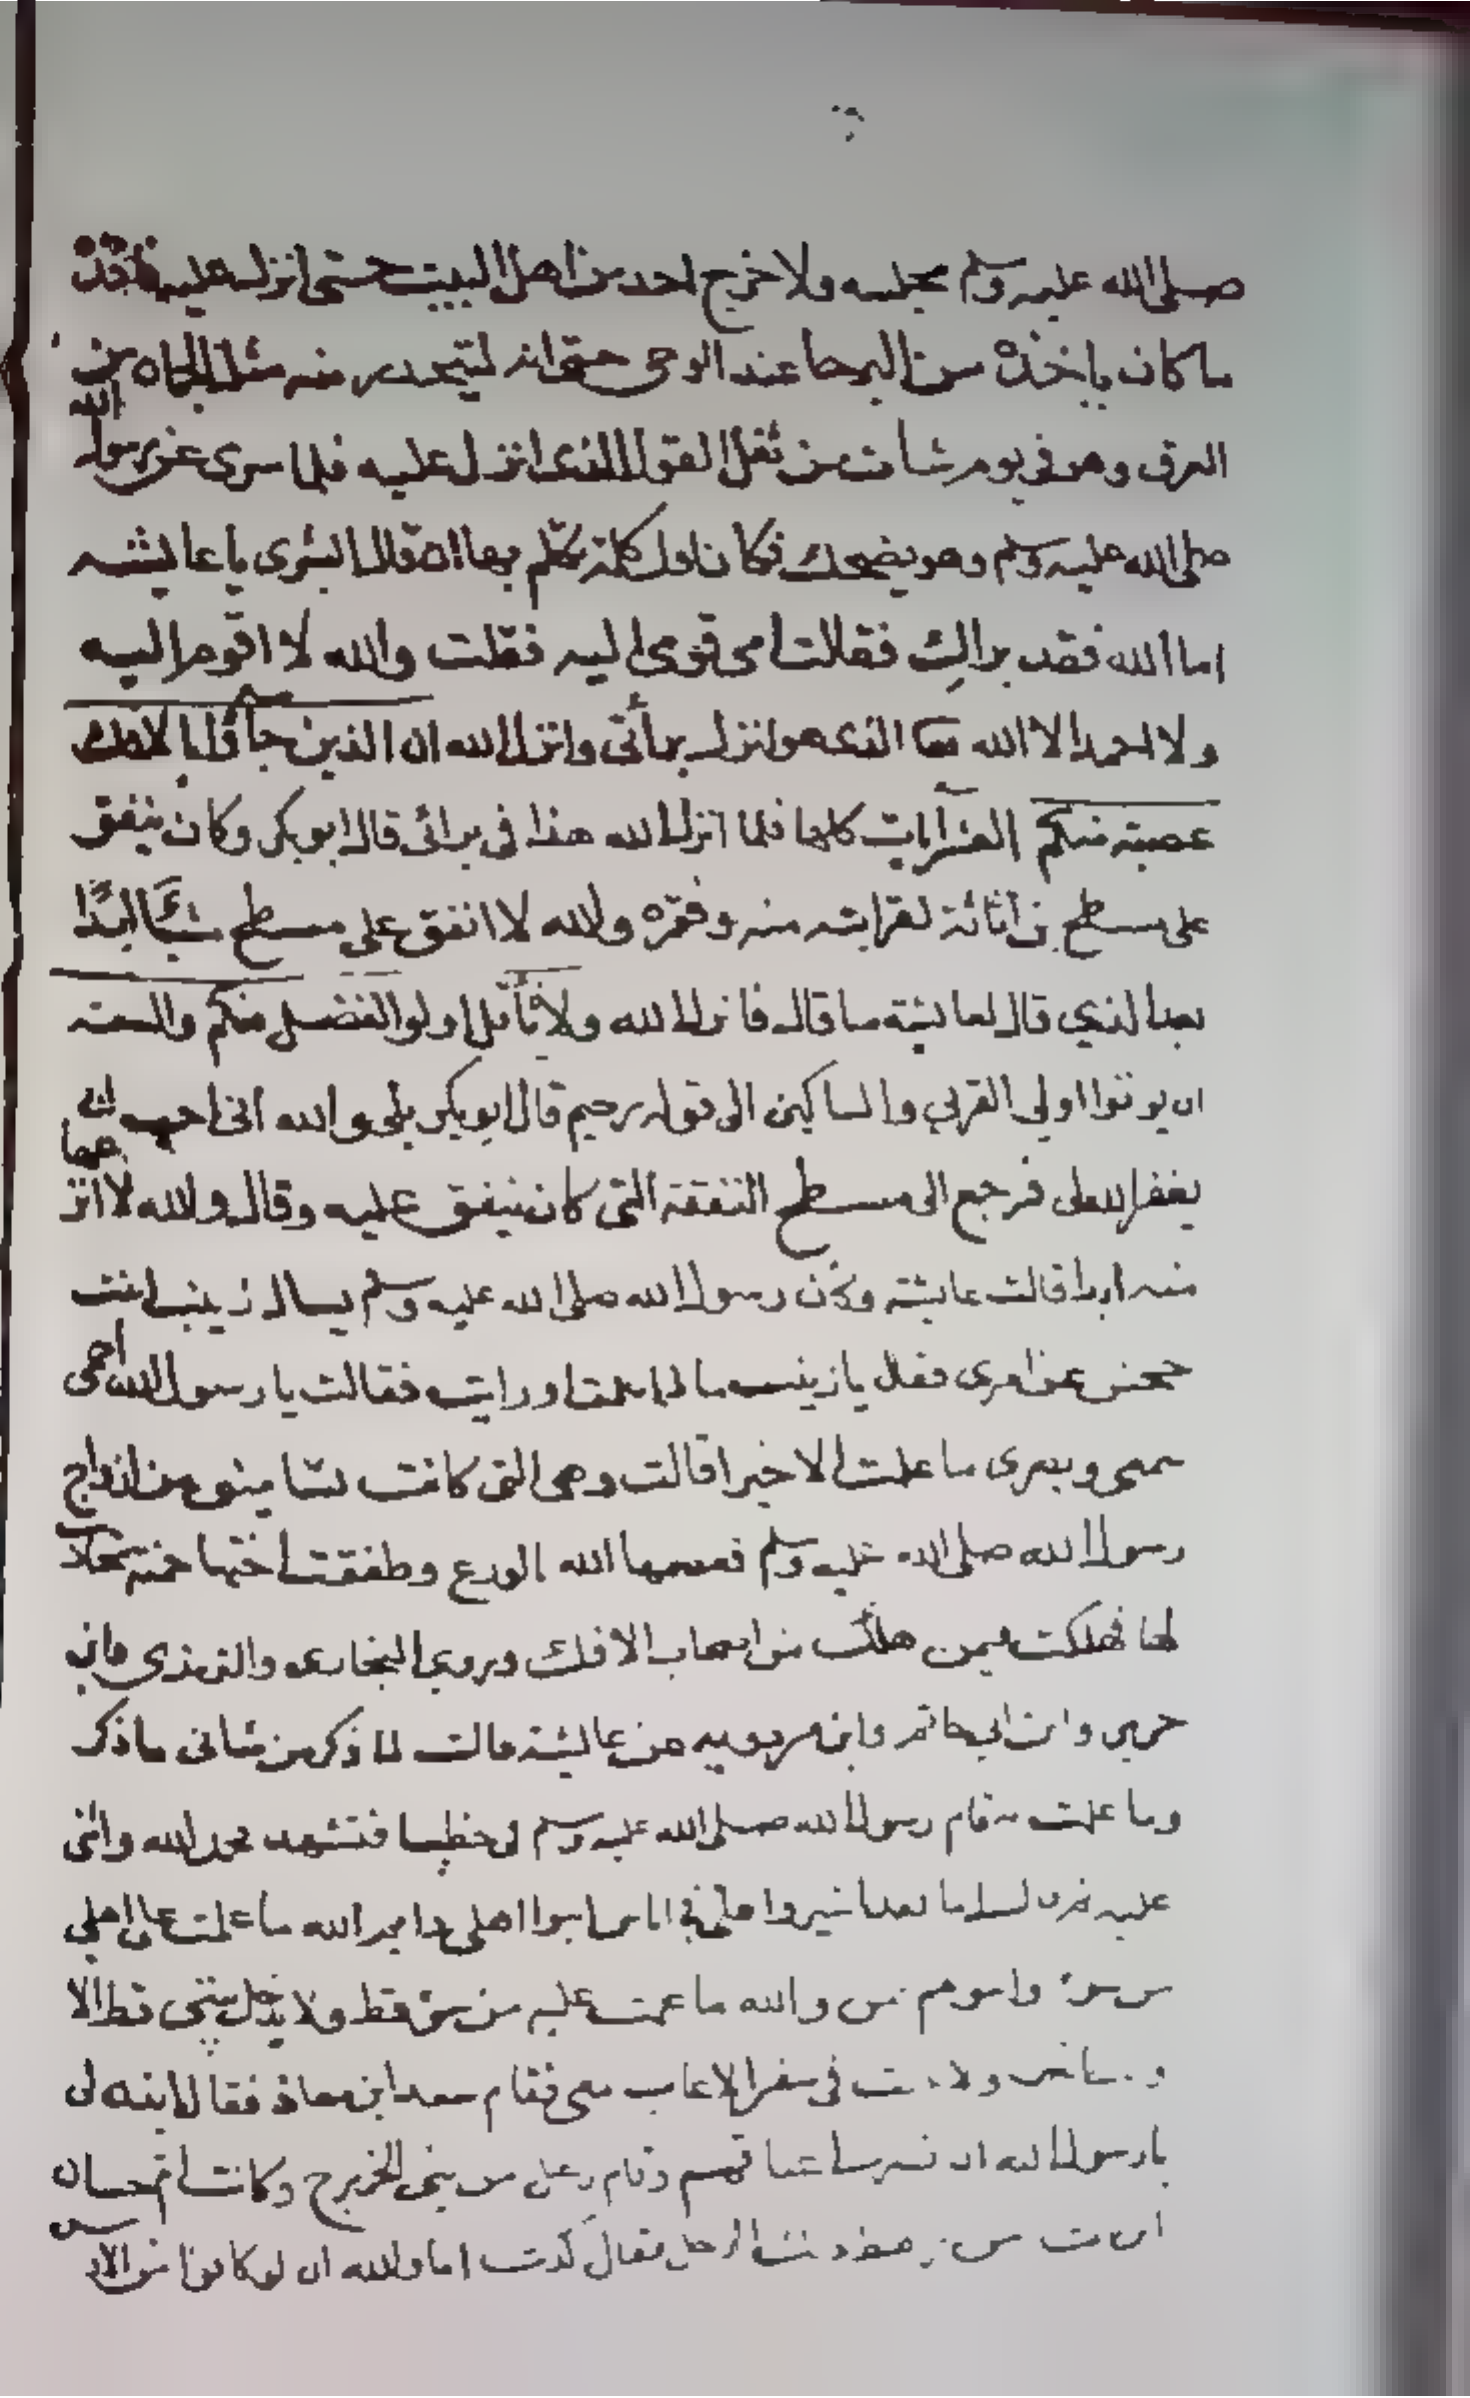 صلى الله عليه وسلم مجلسه ولا خرج احد من اهل البيت حتى انزل عليه فاخذه
ما كان ياخذه من البرحا عند الوحى حتى انه ليتحدر منه مثل الجان من
العرق وهو في يوم شات من ثقل القول الذى انزل عليه فلما سرى عن رسول الله
صلى الله عليه وسلم وهو يضحك فكان اول كلمة تكلم بها ان قال ابشرى يا عايشه
اما الله فقد براك فقالت امى قومى اليه فقلت والله لا اقوم اليه
ولا احمد الا الله الذى هو انزل برأتى وانزل الله ان الذين جاؤا بالافك
عصبة منكم العشر ايات كلها فلما انزل الله هذا في برائى قال ابو بكر وكان ينفق
على مسطح بن اثاثة لقرابته منه وفقره والله لا انفق على مسطح شيئا ابدا
بعد الذي قال لعايشة ما قال فانزل الله ولا يأتل اولوا الفضل منكم والسعة
ان يوتوا اولي القربى والمساكين الى قوله رحيم قال ابو بكر بلى والله انى احب ان
يغفر الله لى فرجع الى مسطح النفقة التى كان ينفق عليه وقال والله لا انزعها
منه ابدا قالت عايشة وكان رسول الله صلى الله عليه وسلم يسال زينب ابنت
جحش عن امرى فقال يا زينب ماذا علمت او رايت فقالت يا رسول الله احمى
سمعى وبصرى ما علمت الا خيرا قالت وهى التى كانت تسامينى من ازواج
رسول الله صلى الله عليه وسلم فعصمها الله بالورع وطفقت اختها حمنة تحارب
لها فهلكت فيمن هلك من اصحاب الافك وروى البخارى والترمذى وابن
جرير وابن ابي حاتم وابن مردويه عن عايشة قالت لما ذكر من شانى ما ذكر
وما علمت به قام رسول الله صلى الله عليه وسلم فى خطيبا فتشهد فحمد الله واثنى
عليه ثم قال اما بعد اشيروا على في اناس ابنوا اهلى وايم الله ما علمت على اهلي
من سوء وابنوهم بمن والله ما علمت عليه من سوء قط ولا يدخل بيتى قط الا
وانا حاضر ولا غبت في سفر الا غاب معى فقام سعد ابن معاذ فقال ايذن لى
يا رسول الله ان نضرب اعناقهم وقام رجل من بنى الخزرج وكانت ام حسان
ابن ثابت من رهط ذلك الرجل فقال كذبت اما والله ان لو كانوا من الاوس